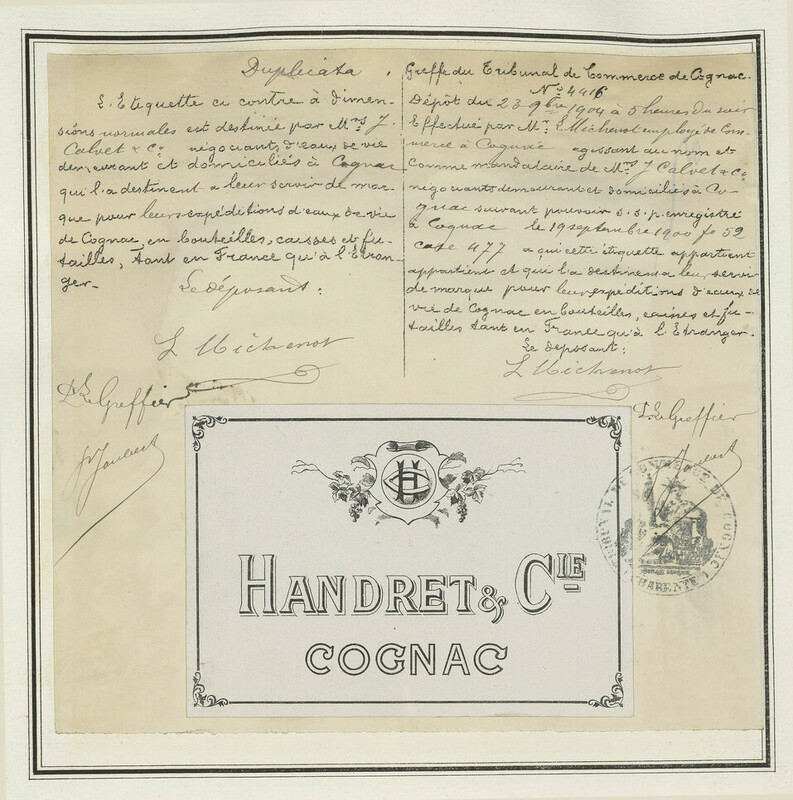 Duplicata
L'Etiquette ci contre à dimen-
sions normales est destinée par Mrs J.
Calvet & Co négociants d'eaux de vie
demeurant et domiciliés à Cognac
qui l'a destinent a leur servir de mar-
que pour leurs expéditions d'eaux de vie
de Cognac, en bouteilles, caisses et fu-
tailles, tant en France qu'à l'Etran-
ger.
Le déposant:
L Michenot
Le Greffier
Joubert
Greffe du Tribunal de Commerce de Cognac.
No 4416
Dépôt du 23 9bre 1904 à 5 heures du soir
Effectué par Mr L. Michenot employé de Com-
merce à Cognac agissant au nom et
comme mandataire de Mrs J Calvet & Co
négociants demeurant et domiciliés à Co-
gnac suivant pouvoir s.s.p. enregistré
à Cognac le 19 septembre 1900 fo 52
case 477 a qui cette étiquette appartient
appartient et qui l'a destinens a leur servir
de marque pour leur expéditions d'eaux de
vie de Cognac en bouteilles, caisses et fu-
tailles tant en France qu'à l'Etranger.
Le déposant:
L Michenot
Le Greffier
Joubert
TRIBUNAL DE COMMERCE DE COGNAC
CHARENTE
HANDRET & CIE
COGNAC